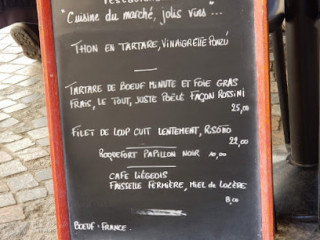 "Cuisine du marché, jolis vins ..."
Thon en tartare, vinaigrette ponzu
Tartare de boeuf minute et foie gras
frais, le tout, juste poêlé façon Rossini
25,00
Filet de loup cuit lentement, risono
22,00
Roquefort Papillon noir 10,00
Café liégeois
Faisselle fermière, miel de Lozère
8,00
Boeuf : France.